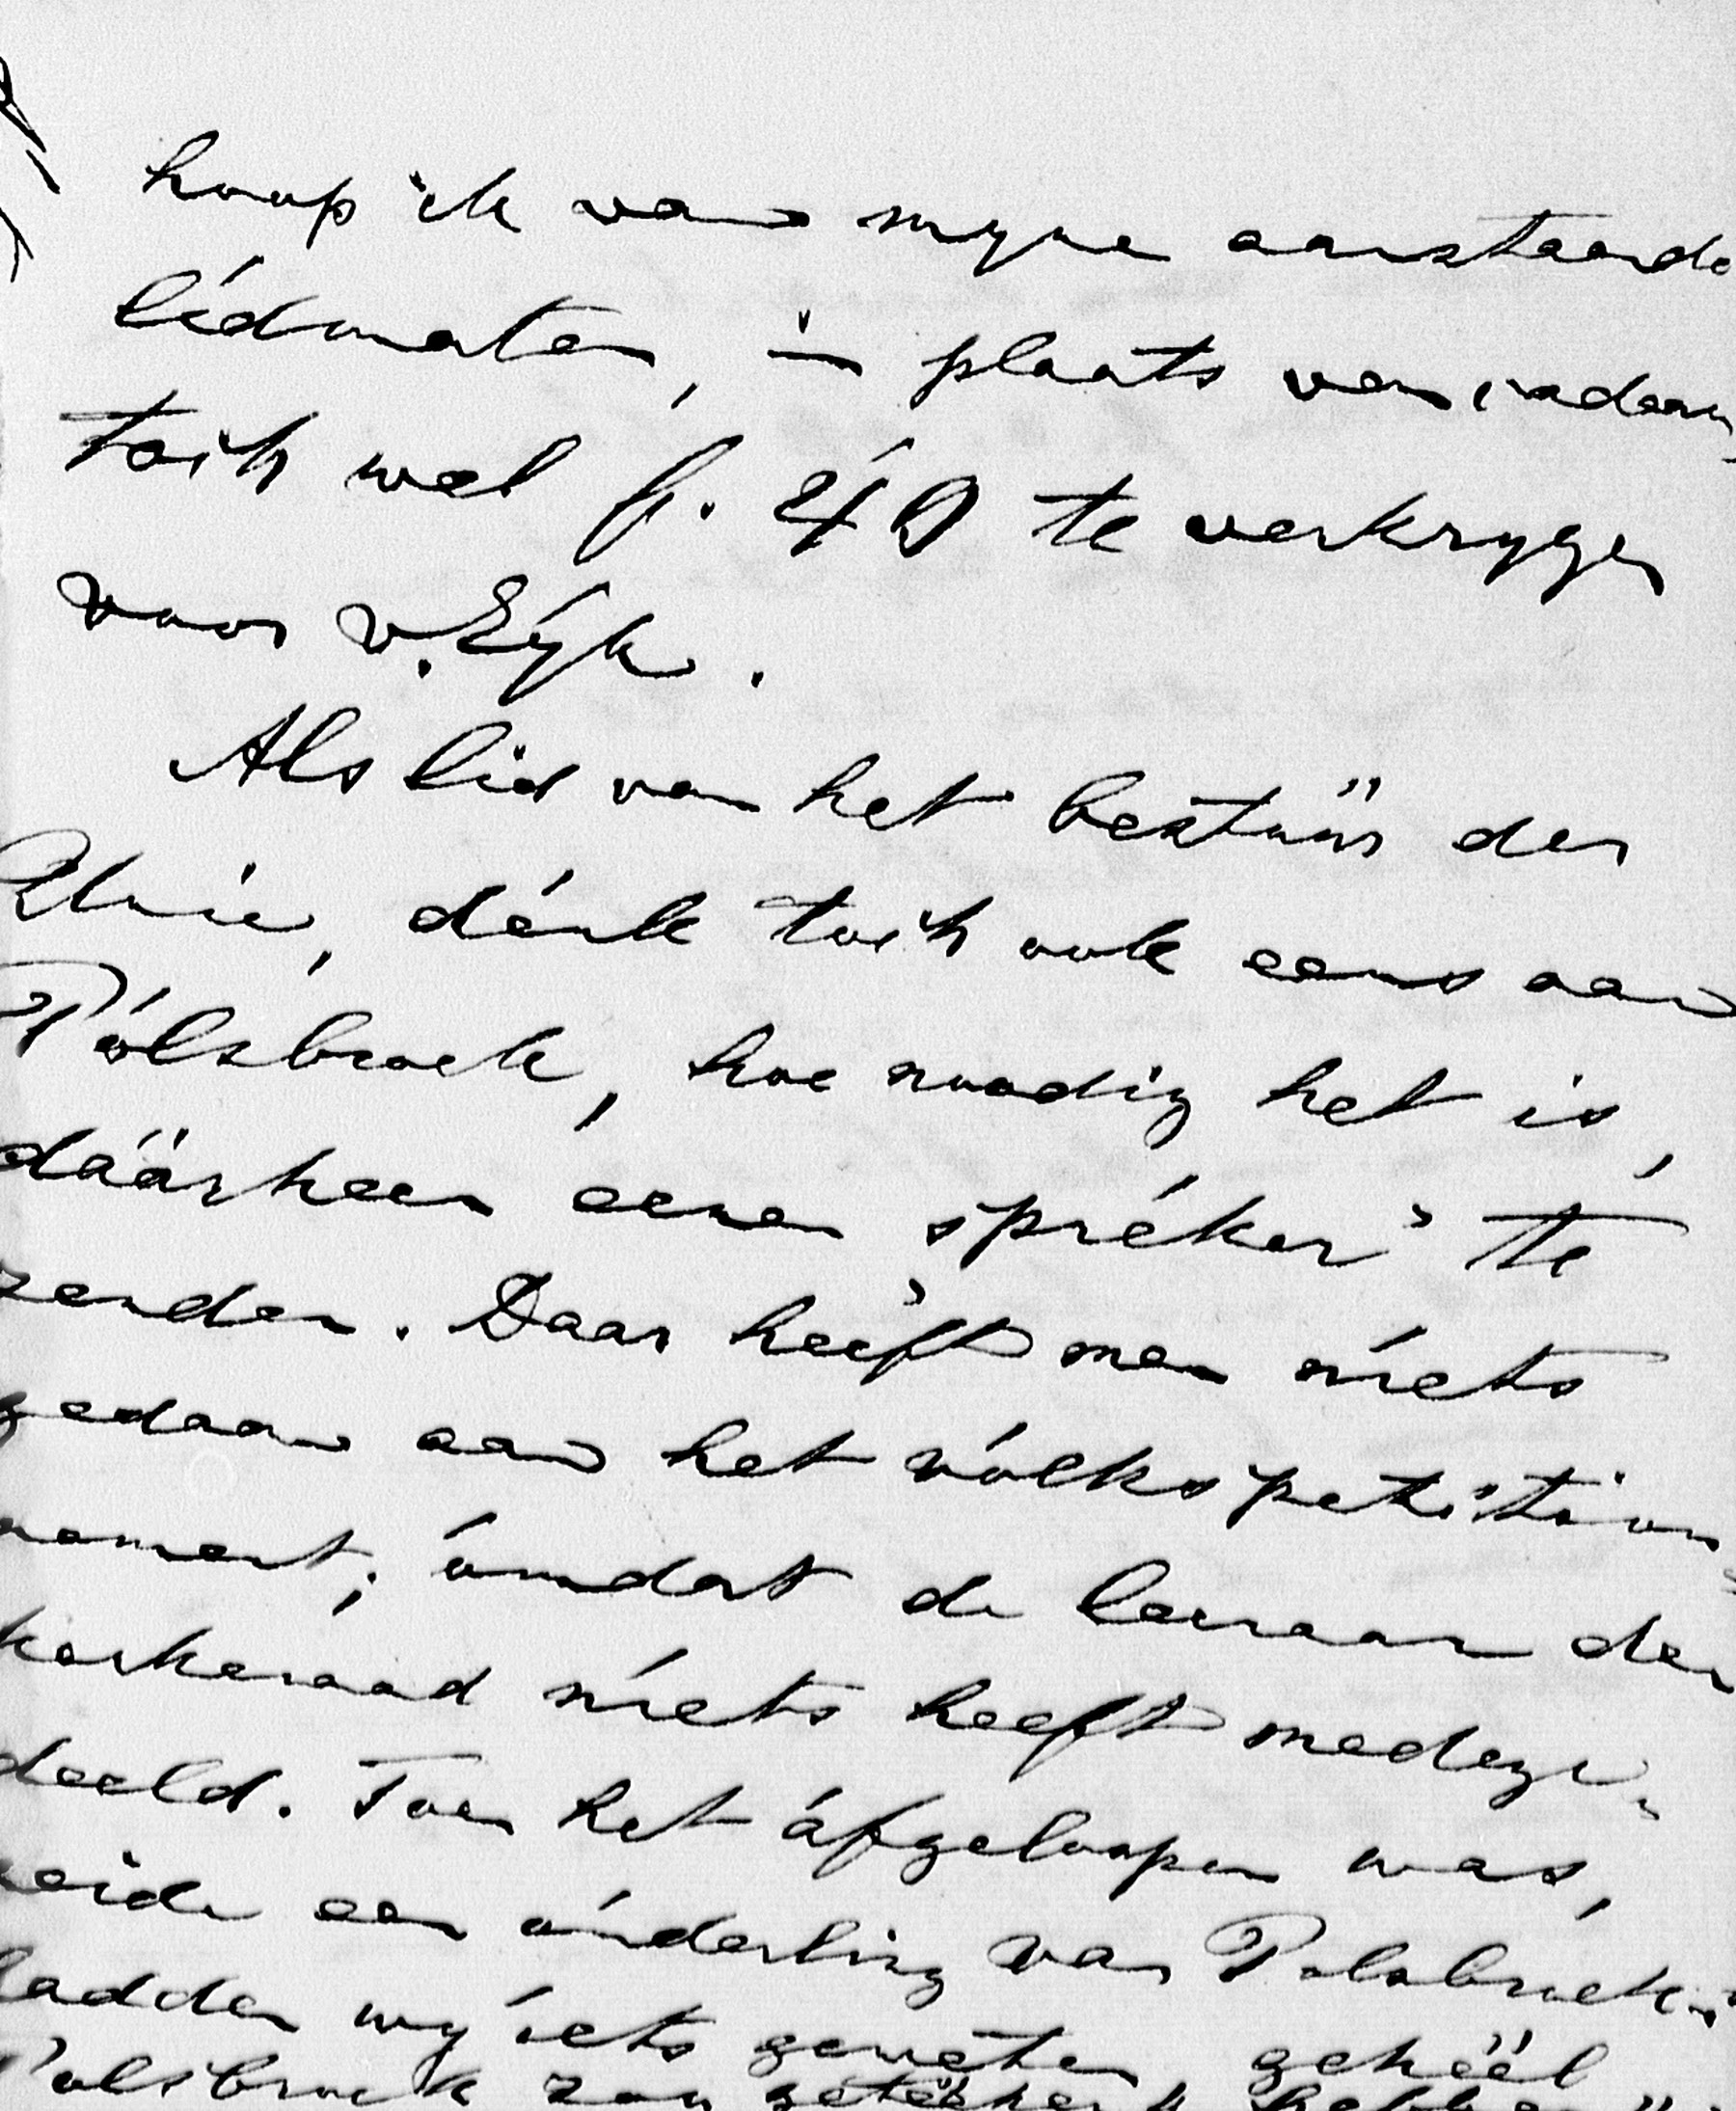 hoop ik van myne aanstaande
lidmaten, in plaats van
toch wel f. 40 te verkrygen
voor v. Eyk.
Als lid van het bestuur der
Unie, dénk toch ook eens aan
Pólsbroek, hoe noodig het is,
dáárheen eenen spréker te
zenden. Daar heeft men niets
gedaan aan het vólkspetition
nement, ómdat de leeraar den
kerkeraad niets heeft medege-
deeld. Toen het áfgeloopen was,
zeide een ouderling van Polsbroek:
hadden wy iets geweten, gehéél
Polsbroek zou getéékend hebben